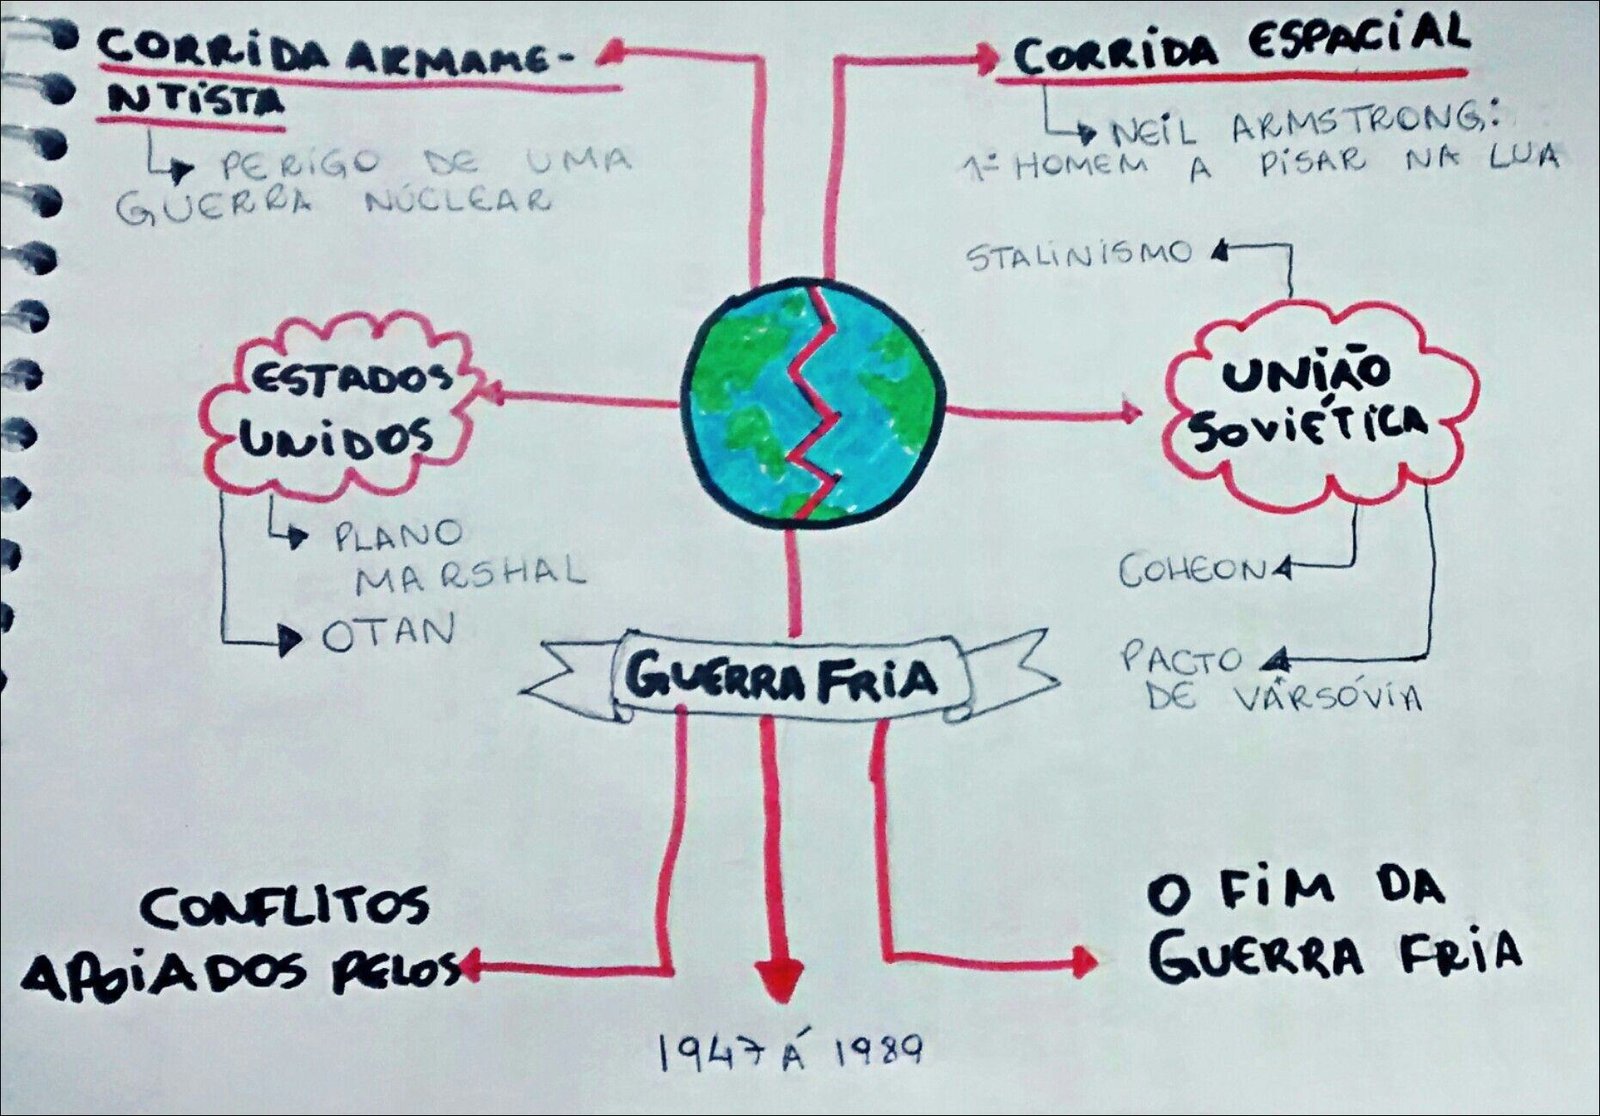 CORRIDA ARMAME-
NTISTA
PERIGO DE UMA
GUERRA NÚCLEAR
CORRIDA ESPACIAL
NEIL ARMSTRONG:
1º HOMEM A PISAR NA LUA
STALINISMO
ESTADOS
UNIDOS
PLANO
MARSHAL
OTAN
UNIÃO
SOVIÉTICA
COHEON
PACTO
DE VARSÓVIA
GUERRA FRIA
CONFLITOS
APOIADOS PELOS
1947 Á 1989
O FIM DA
GUERRA FRIA